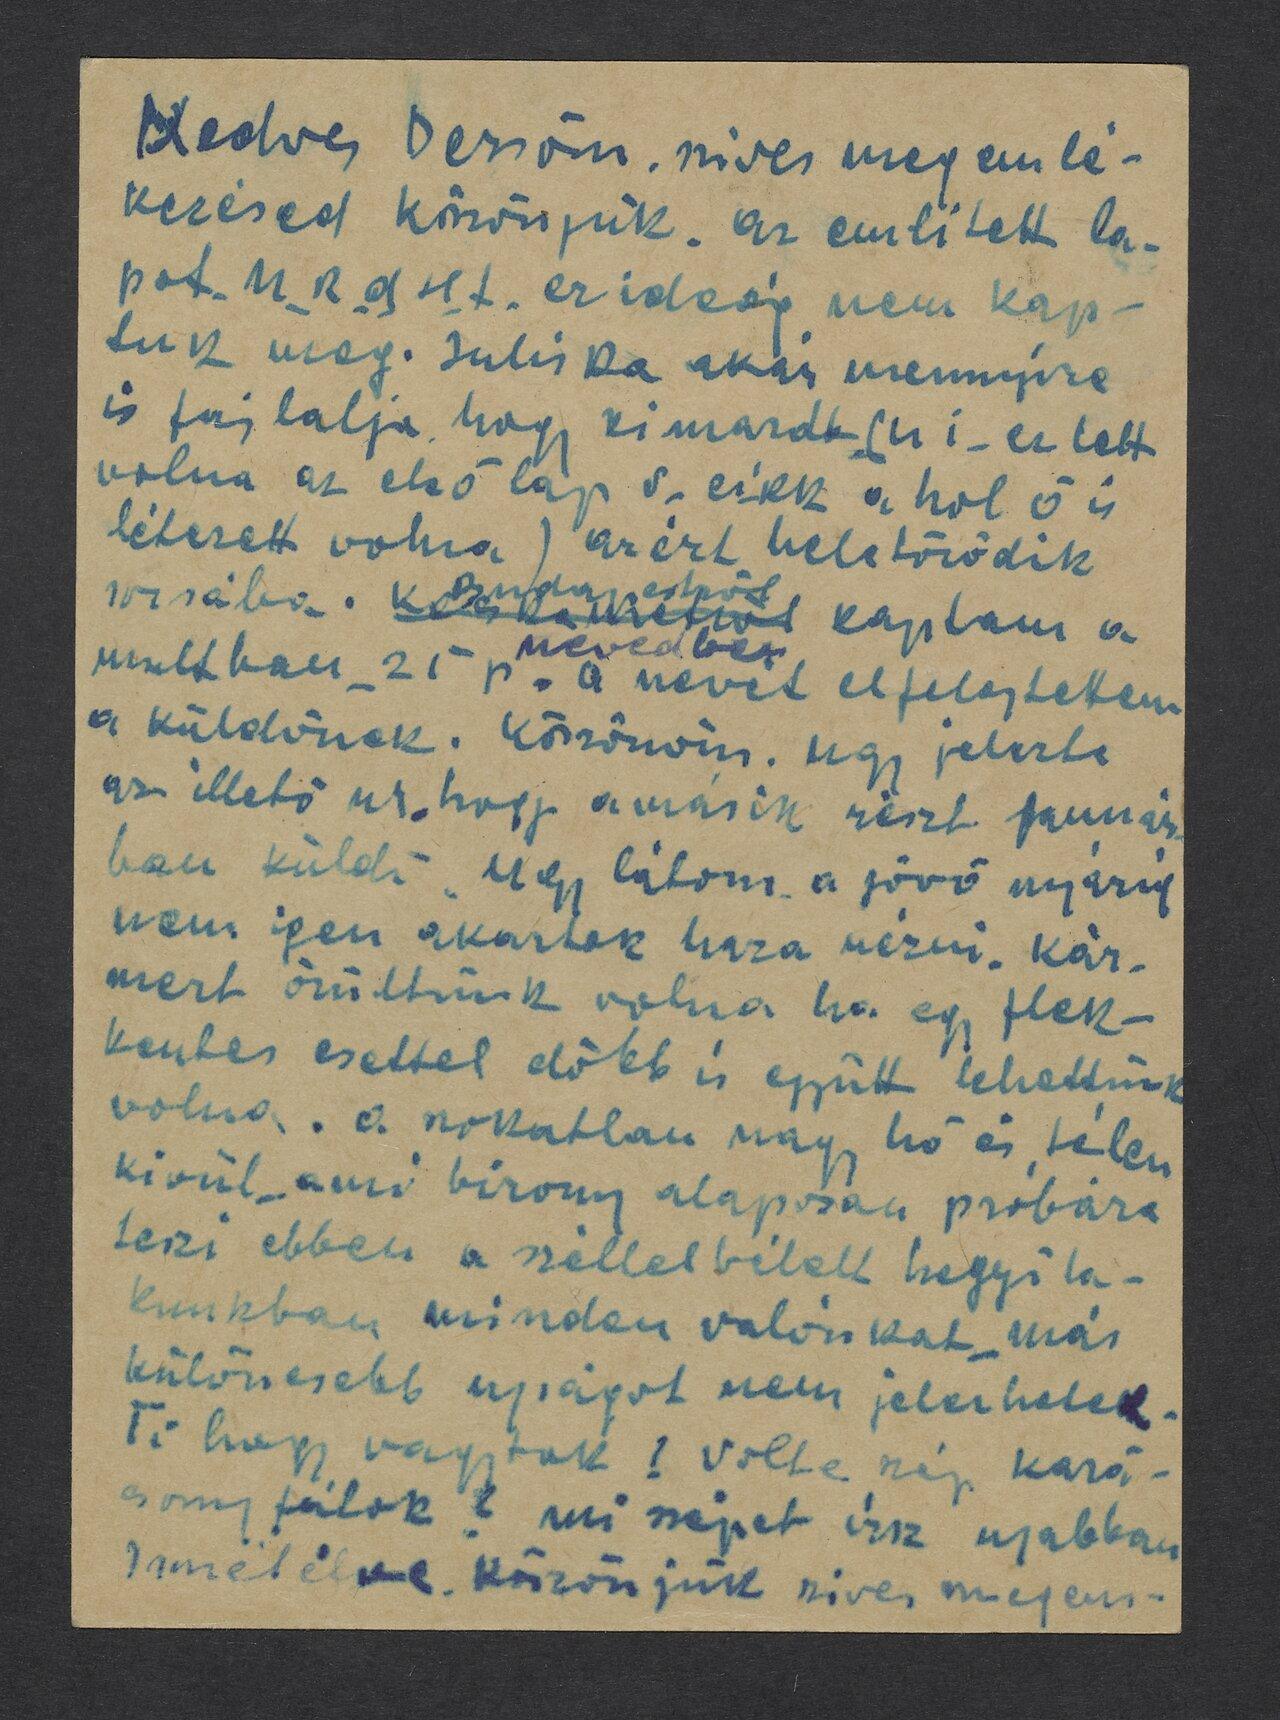 Kedves Dezsőm. szives megemlé-
kezésed köszönjük. az emlitett la-
pot. U_R_d_H_t. ez ideág nem kap-
tuk meg. Juliska akár mennyire
is fájlalja, hogy kimaradt (U i- ez lett
volna az első lap s. cikk a hol ő is
létezett volna) azért beletörődik
sorsába. Budapestről kaptam a
multban_25 p. nevedben a nevét elfelejtettem
a küldőnek. Köszönöm. Ugy jelezte
az illető ur. hogy a másik részt Január-
ban küldi. Ugy látom a jövő nyárig
nem igen akartok haza nézni. Kár-
mert örültünk volna ha egy flek-
kentes esettel dőbb is együtt lehettünk
volna. a szokatlan nagy hó és télen
kivül_ami bizony alaposan próbára
teszi ebben a széllelbélelt hegyi la-
kunkban minden valónkat_más
különesebb ujságot nem jelezhetek.
Ti hogy vagytok? Volt e szép kará-
csonyfátok? mi szépet irsz ujabban
Ismételve. köszönjük szives megem-